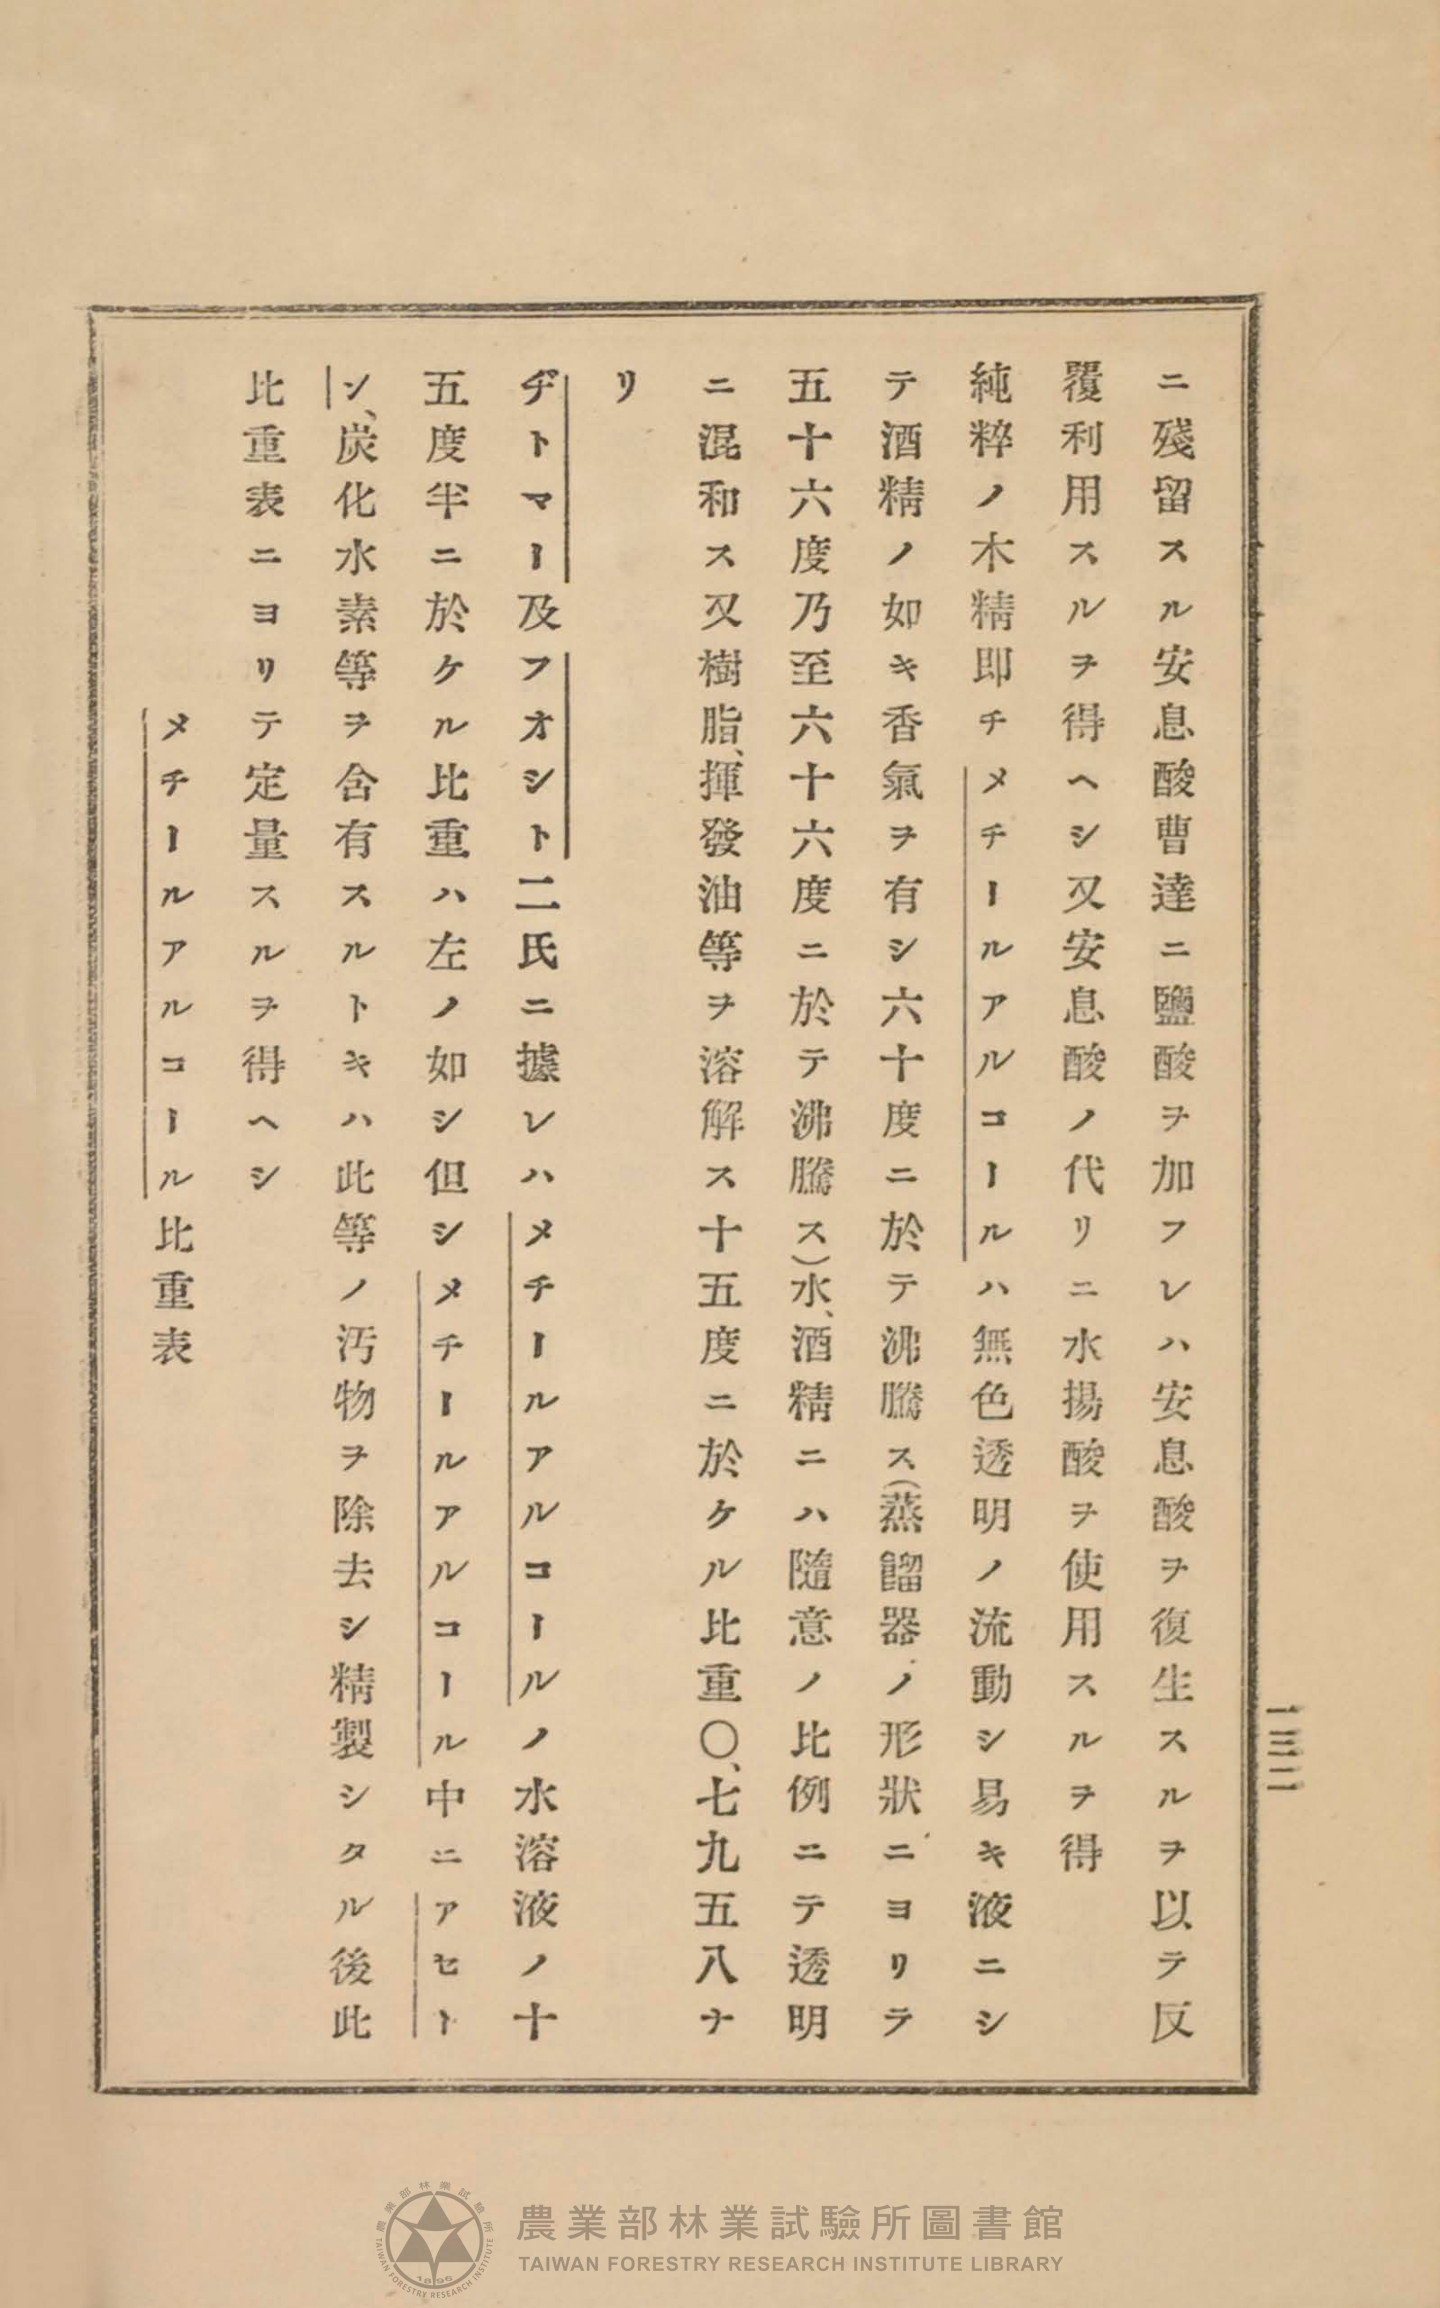 ニ殘留スル安息酸曹達ニ鹽酸ヲ加フレハ安息酸ヲ復生スルヲ以テ反
覆利用スルヲ得ヘシ又安息酸ノ代リニ水揚酸ヲ使用スルヲ得
純粹ノ木精卽チメチールアルコールハ無色透明ノ流動シ易キ液ニシ
テ酒精ノ如キ香氣ヲ有シ六十度ニ於テ沸騰ス(蒸餾器ノ形狀ニヨリテ
五十六度乃至六十六度ニ於テ沸騰ス)水、酒精ニハ隨意ノ比例ニテ透明
ニ混和ス又樹脂、揮發油等ヲ溶解ス十五度ニ於ケル比重〇、七九五八ナ
リ
ヂトマー及フオシト二氏ニ據レハメチールアルコールノ水溶液ノ十
五度半ニ於ケル比重ハ左ノ如シ但シメチールアルコール中ニアセト
ン、炭化水素等ヲ含有スルトキハ此等ノ汚物ヲ除去シ精製シタル後此
比重表ニヨリテ定量スルヲ得ヘシ
メチールアルコール比重表
一三二
農業部林業試驗所圖書館
TAIWAN FORESTRY RESEARCH INSTITUTE LIBRARY
農業部林業試驗所
TAIWAN FORESTRY RESEARCH INSTITUTE
1896